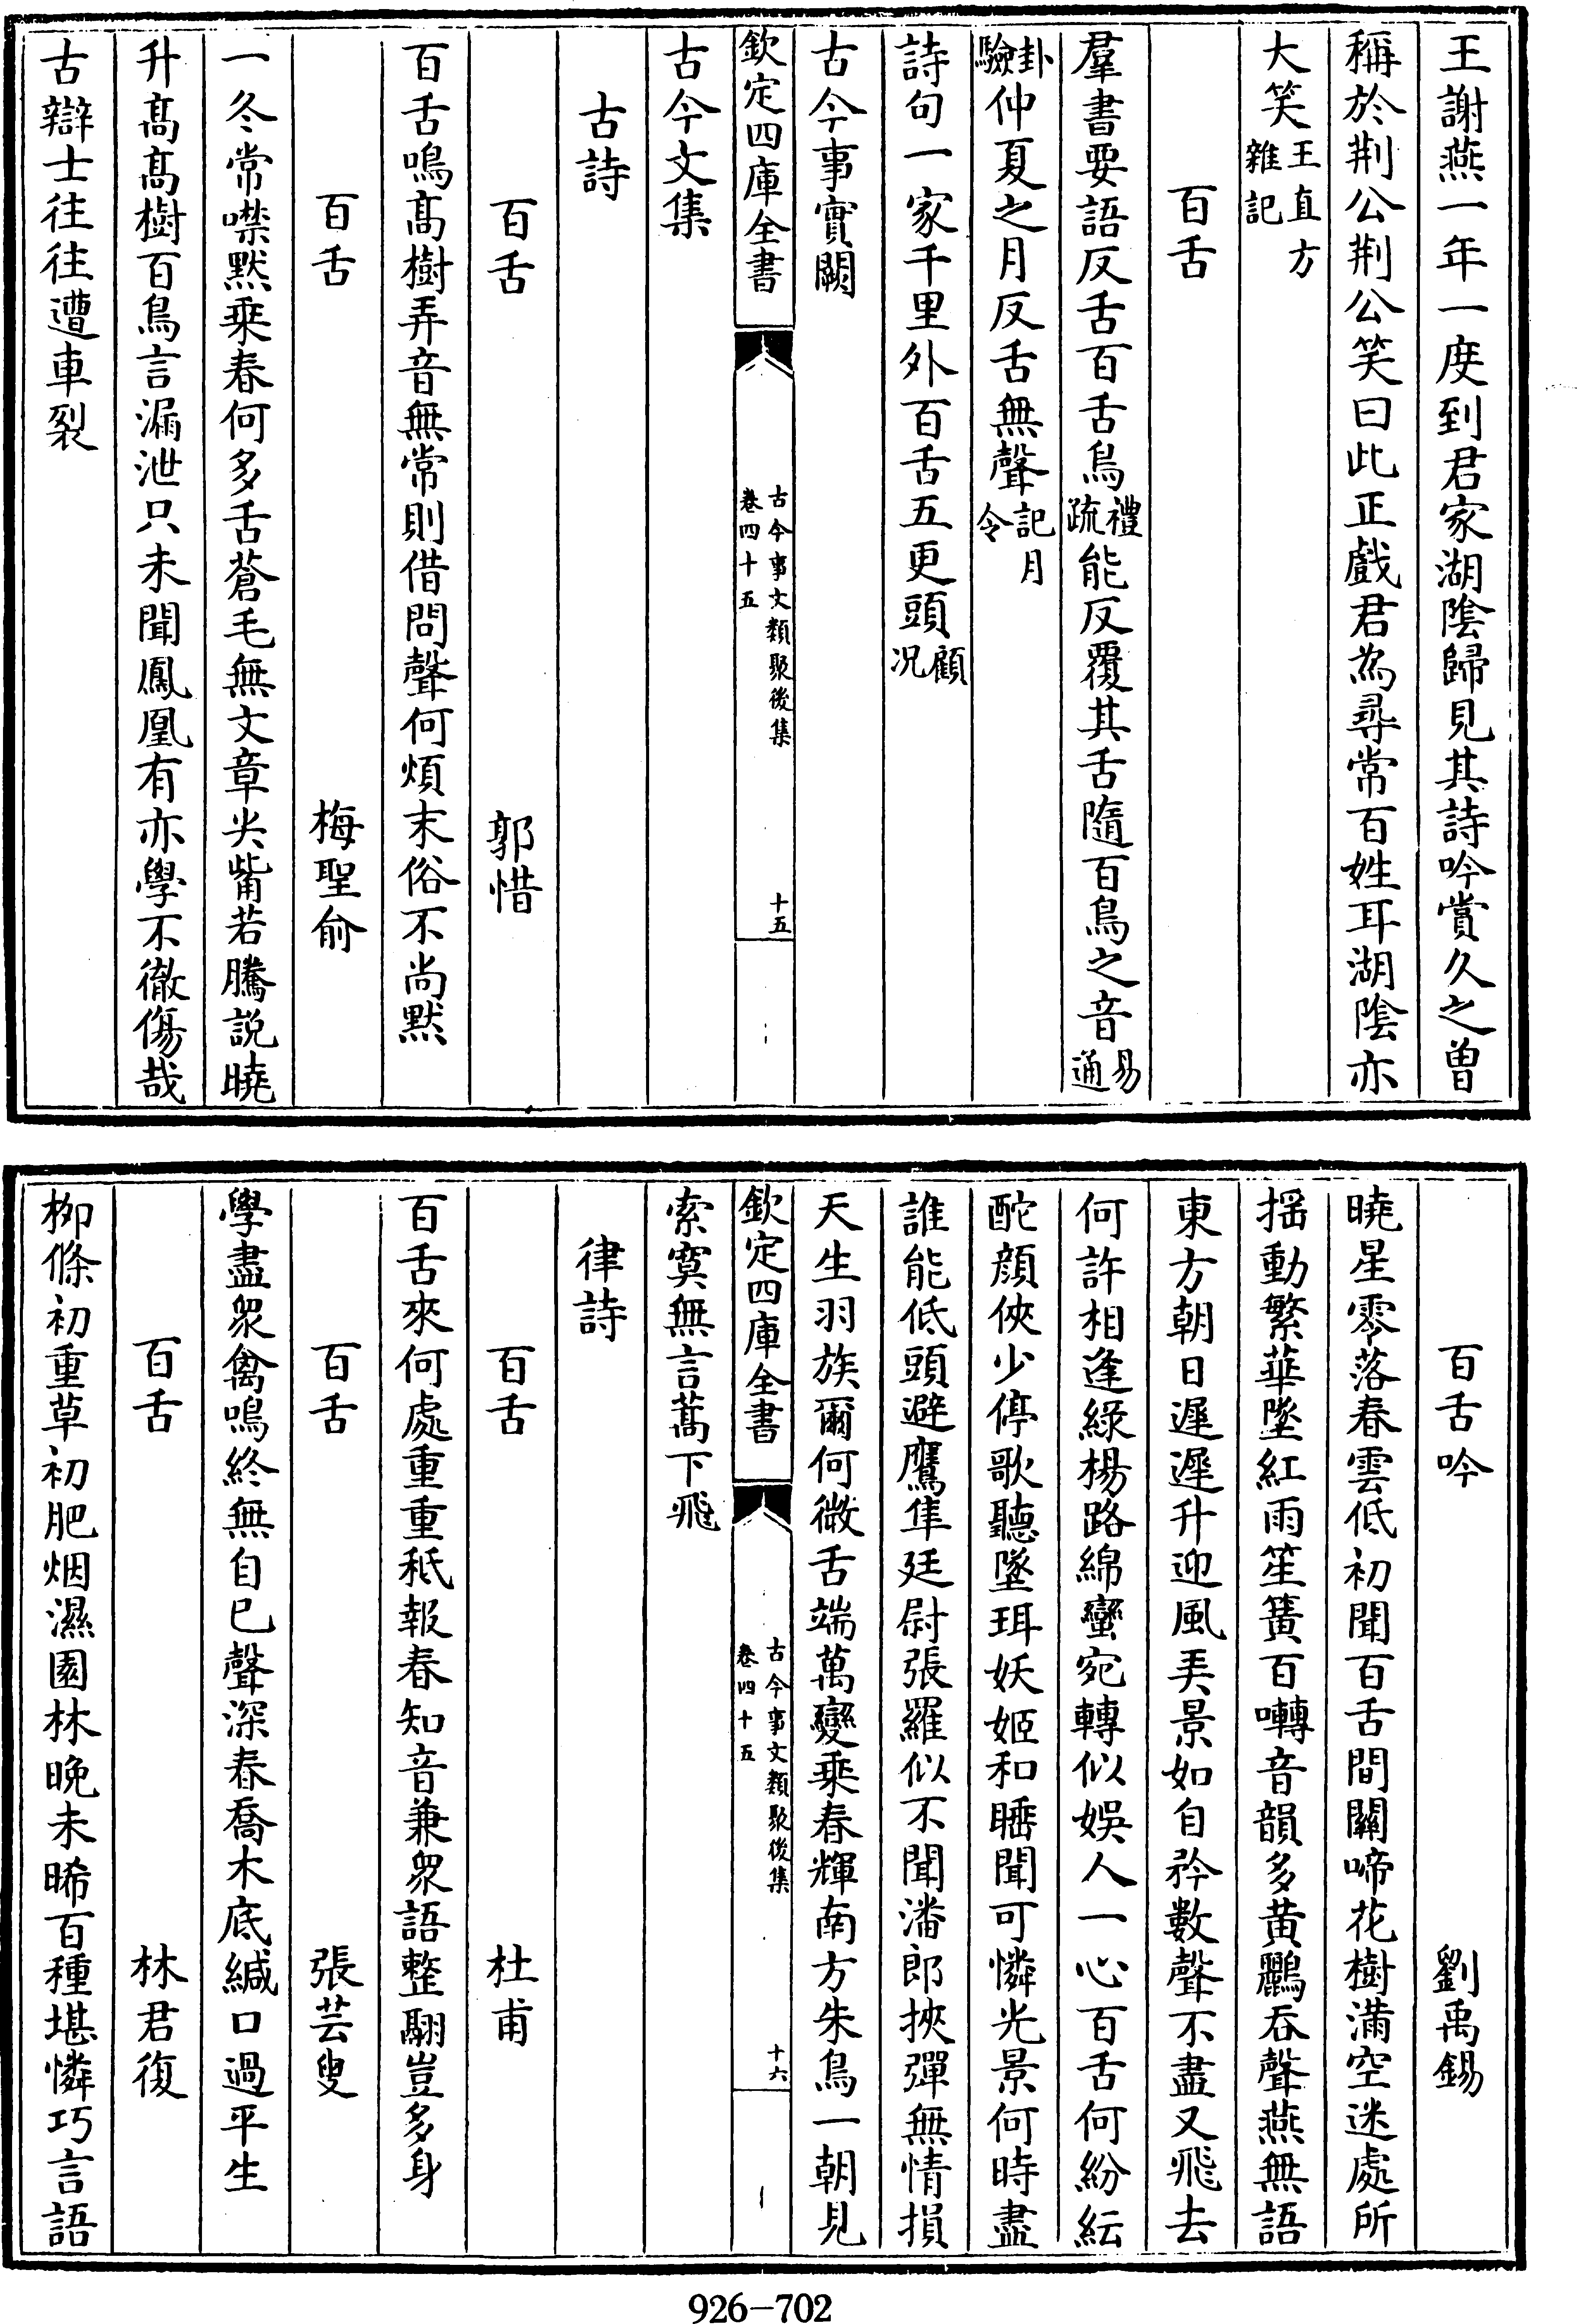 王謝燕一年一度到君家湖陰歸見其詩吟賞久之曽
稱於荆公荆公笑曰此正戲君為尋常百姓耳湖陰亦
大笑王直方雜記
百舌
羣書要語反舌百舌鳥禮疏能反覆其舌隨百鳥之音易通
卦驗仲夏之月反舌無聲記月令
詩句一家千里外百舌五更頭顧况
古今事實闕
欽定四庫全書
古今事文類聚後集
卷四十五
十五
古今文集
古詩
百舌 郭惜
百舌鳴髙樹弄音無常則借問聲何煩末俗不尚黙
百舌 梅聖俞
一冬常噤黙乘春何多舌蒼毛無文章尖觜若騰説曉
升髙髙樹百鳥言漏泄只未聞鳳凰有亦學不徹傷哉
古辯士往往遭車裂
百舌吟 劉禹錫
曉星零落春雲低初聞百舌間關啼花樹滿空迷處所
揺動繁華墜紅雨笙簧百囀音韻多黄鸝吞聲燕無語
東方朝日遲遲升迎風弄景如自矜數聲不盡又飛去
何許相逢綠楊路綿蠻宛轉似娛人一心百舌何紛紜
酡顔俠少停歌聽墜珥妖姬和睡聞可憐光景何時盡
誰能低頭避鷹隼廷尉張羅似不聞潘郎挾彈無情損
天生羽族爾何微舌端萬變乘春輝南方朱鳥一朝見
欽定四庫全書
古今事文類聚後集
卷四十五
十六
索寞無言蒿下飛
律詩
百舌 杜甫
百舌來何處重重秪報春知音兼衆語整翮豈多身
百舌 張芸叟
學盡衆禽鳴終無自已聲深春喬木底緘口過平生
百舌 林君復
栁條初重草初肥烟濕園林晚未晞百種堪憐巧言語
926-702